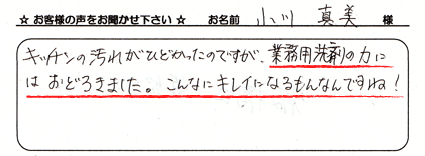 ☆ お客様の声をお聞かせ下さい ☆ お名前 小川 真美 様
キッチンの汚れがひどかったのですが、業務用洗剤の力に
はおどろきました。こんなにキレイになるもんなんですね!